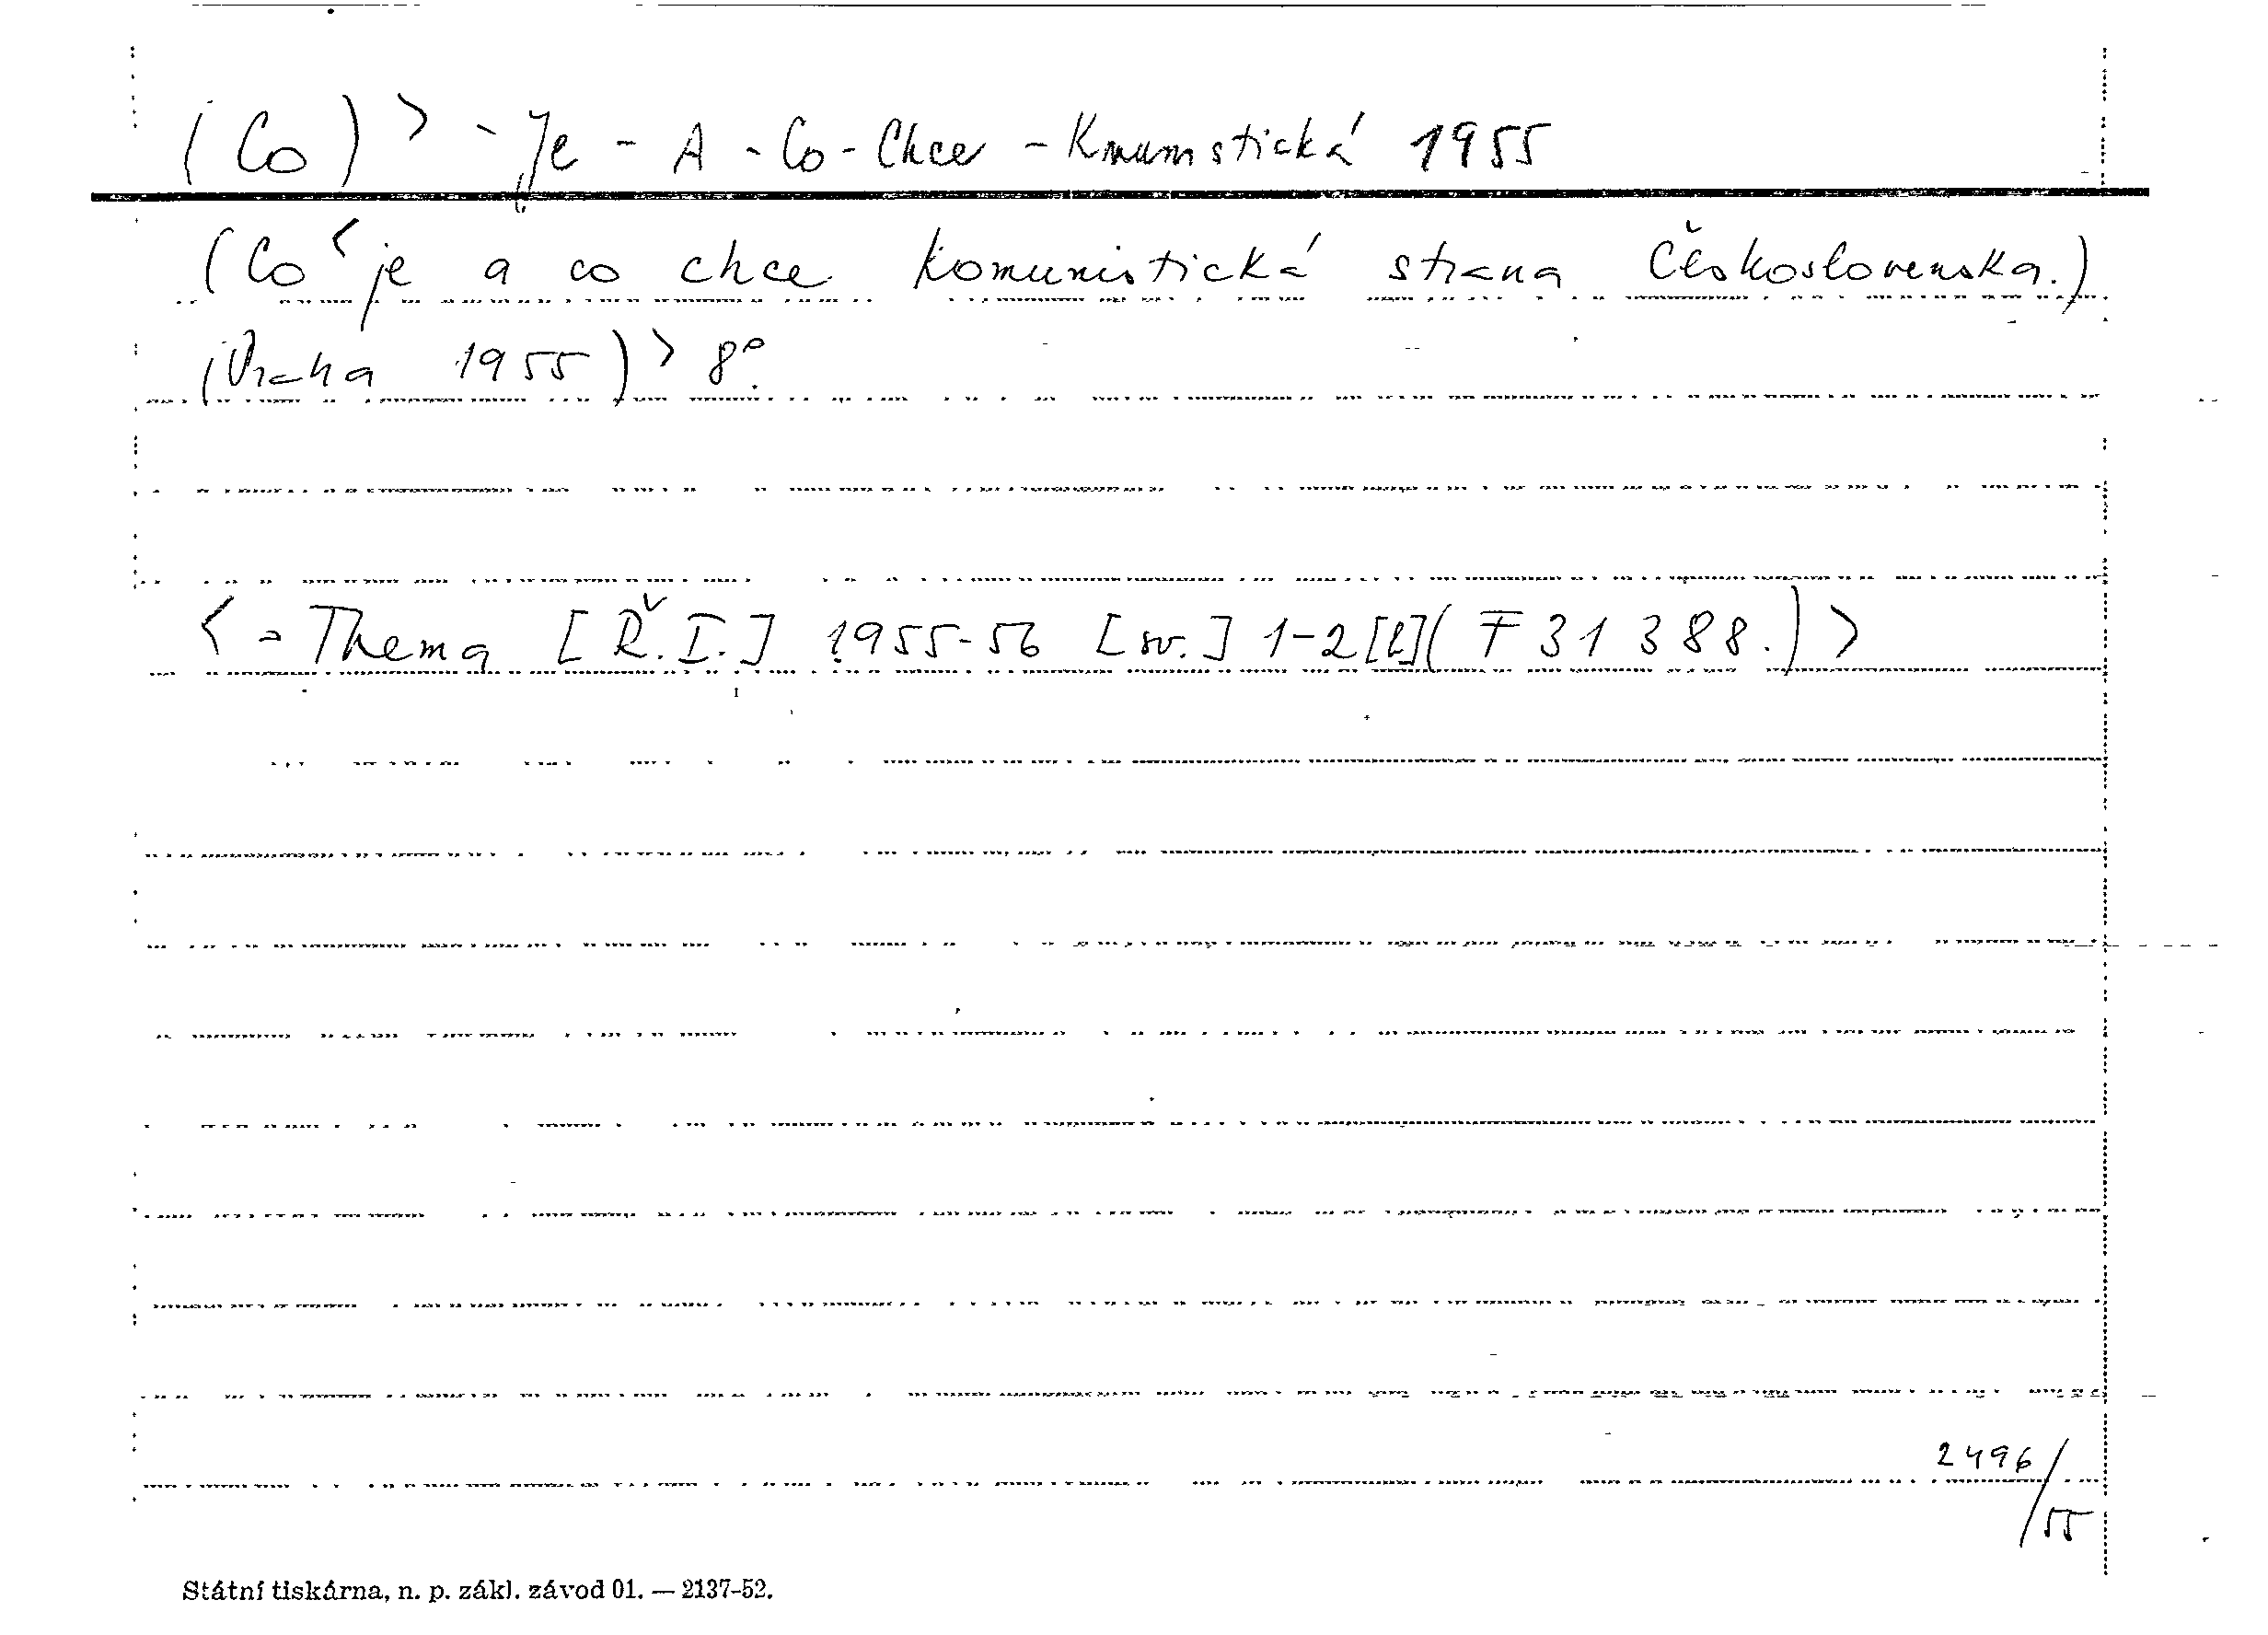 (Co) > - Je - A - Co - Chce - Komunistická 1955
(Co < je a co chce Komunistická strana Československa.)
(Praha 1955) > 8°.
< = Thema [Ř.I.] 1955-56 [sv.] 1-2 [b] ( F 31 388.) >
2496/55
Státní tiskárna, n. p. zákl. závod 01. — 2137-52.